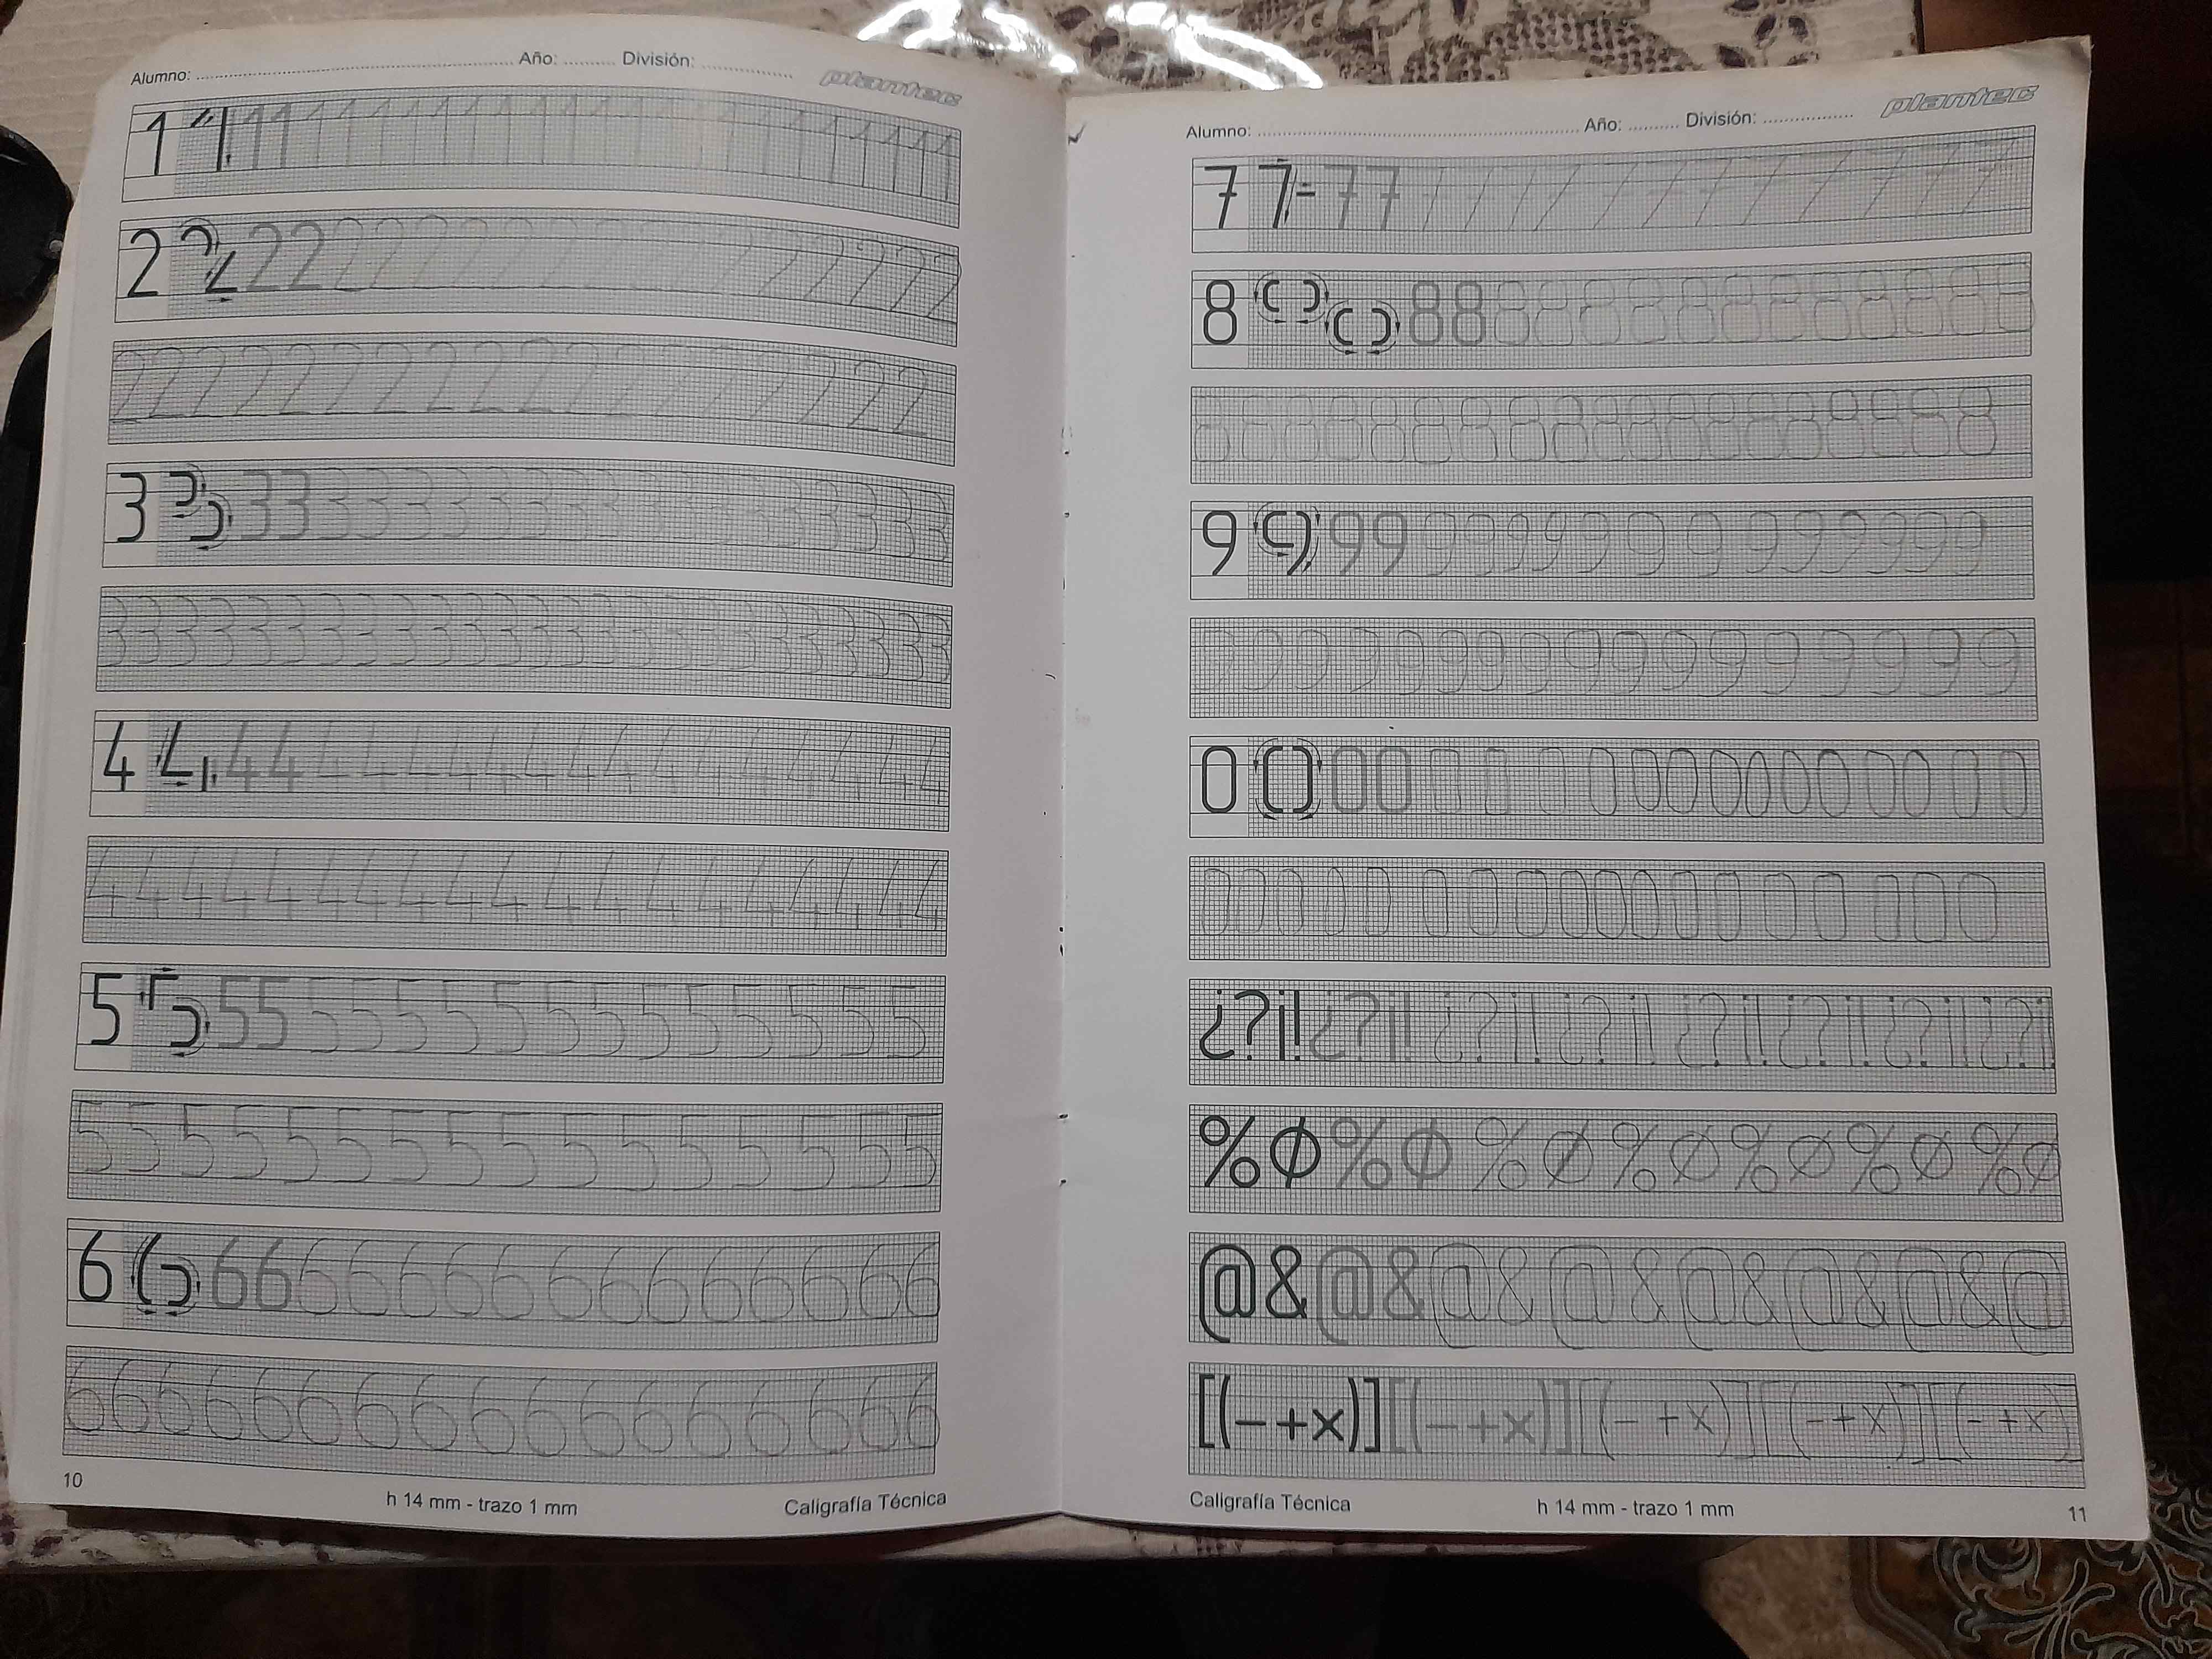 Alumno: ........ Año: ........ División: ........ plantec
1 1 1 1 1 1 1 1 1 1 1 1 1 1 1 1 1 1 1 1 1 1
2 2 2 2 2 2 2 2 2 2 2 2 2 2 2 2 2 2
2 2 2 2 2 2 2 2 2 2 2 2 2 2 2 2 2 2
3 3 3 3 3 3 3 3 3 3 3 3 3 3 3 3 3 3 3
3 3 3 3 3 3 3 3 3 3 3 3 3 3 3 3 3 3 3 3 3
4 4 4 4 4 4 4 4 4 4 4 4 4 4 4 4 4 4
4 4 4 4 4 4 4 4 4 4 4 4 4 4 4 4 4 4
5 5 5 5 5 5 5 5 5 5 5 5 5 5 5 5
5 5 5 5 5 5 5 5 5 5 5 5 5 5 5 5
6 6 6 6 6 6 6 6 6 6 6 6 6 6 6 6
6 6 6 6 6 6 6 6 6 6 6 6 6 6 6 6
10
h 14 mm - trazo 1 mm
Caligrafía Técnica
Alumno: ........ Año: ........ División: ........ plantec
7 7 7 7 7 7 7 7 7 7 7 7 7 7 7 7
8 8 8 8 8 8 8 8 8 8 8 8 8 8 8
8 8 8 8 8 8 8 8 8 8 8 8 8 8 8 8 8 8
9 9 9 9 9 9 9 9 9 9 9 9 9 9 9 9 9
9 9 9 9 9 9 9 9 9 9 9 9 9 9 9 9 9
0 0 0 0 0 0 0 0 0 0 0 0 0 0 0 0 0
0 0 0 0 0 0 0 0 0 0 0 0 0 0 0 0 0 0
¿?¡!¿?¡!¿?¡!¿?¡!¿?¡!¿?¡!¿?¡!¿?¡!
%Ø%Ø%Ø%Ø%Ø%Ø%Ø
@&@&@&@&@&@&@&@
[(-+x)][(-+x)][(-+x)][(-+x)][(-+x)]
Caligrafía Técnica
h 14 mm - trazo 1 mm
11